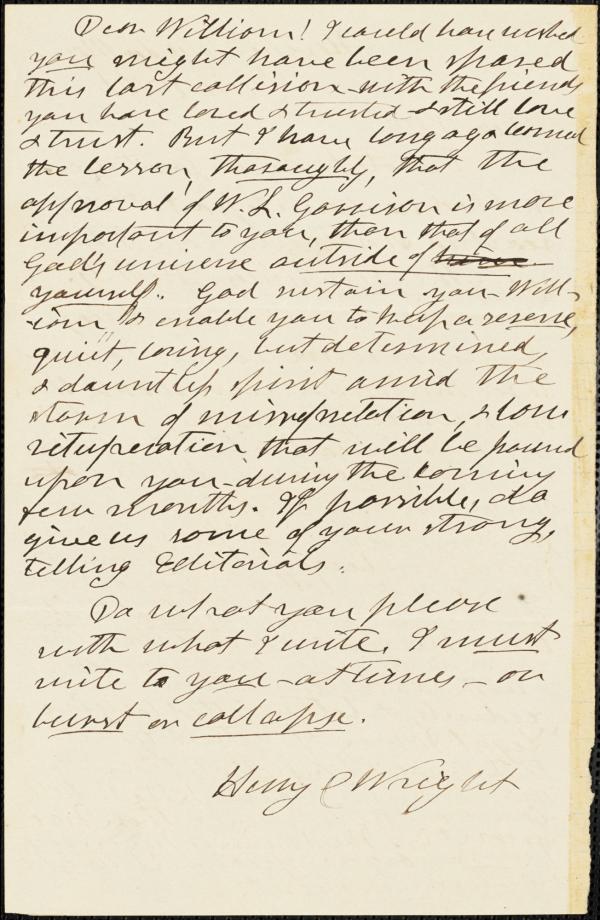 Dear William! I could have wished
you might have been spared
this last collision with the friends
you have loved & trusted & still love
& trust. But I have long ago learned
the lesson, thoroughly, that the
approval of W. L. Garrison is more
important to you, than that of all
God's universe outside of
yourself. God sustain you Will-
iam, & enable you to keep a serene,
quiet, loving, but determined,
& dauntless spirit amid the
storm of misrepretation, & low
vituperation that will be poured
upon you during the coming
few months. If possible, do
give us some of your strong,
telling Editorials.
Do what you please
with what I write. I must
write to you — at times — or
burst or collapse.
Henry C Wright